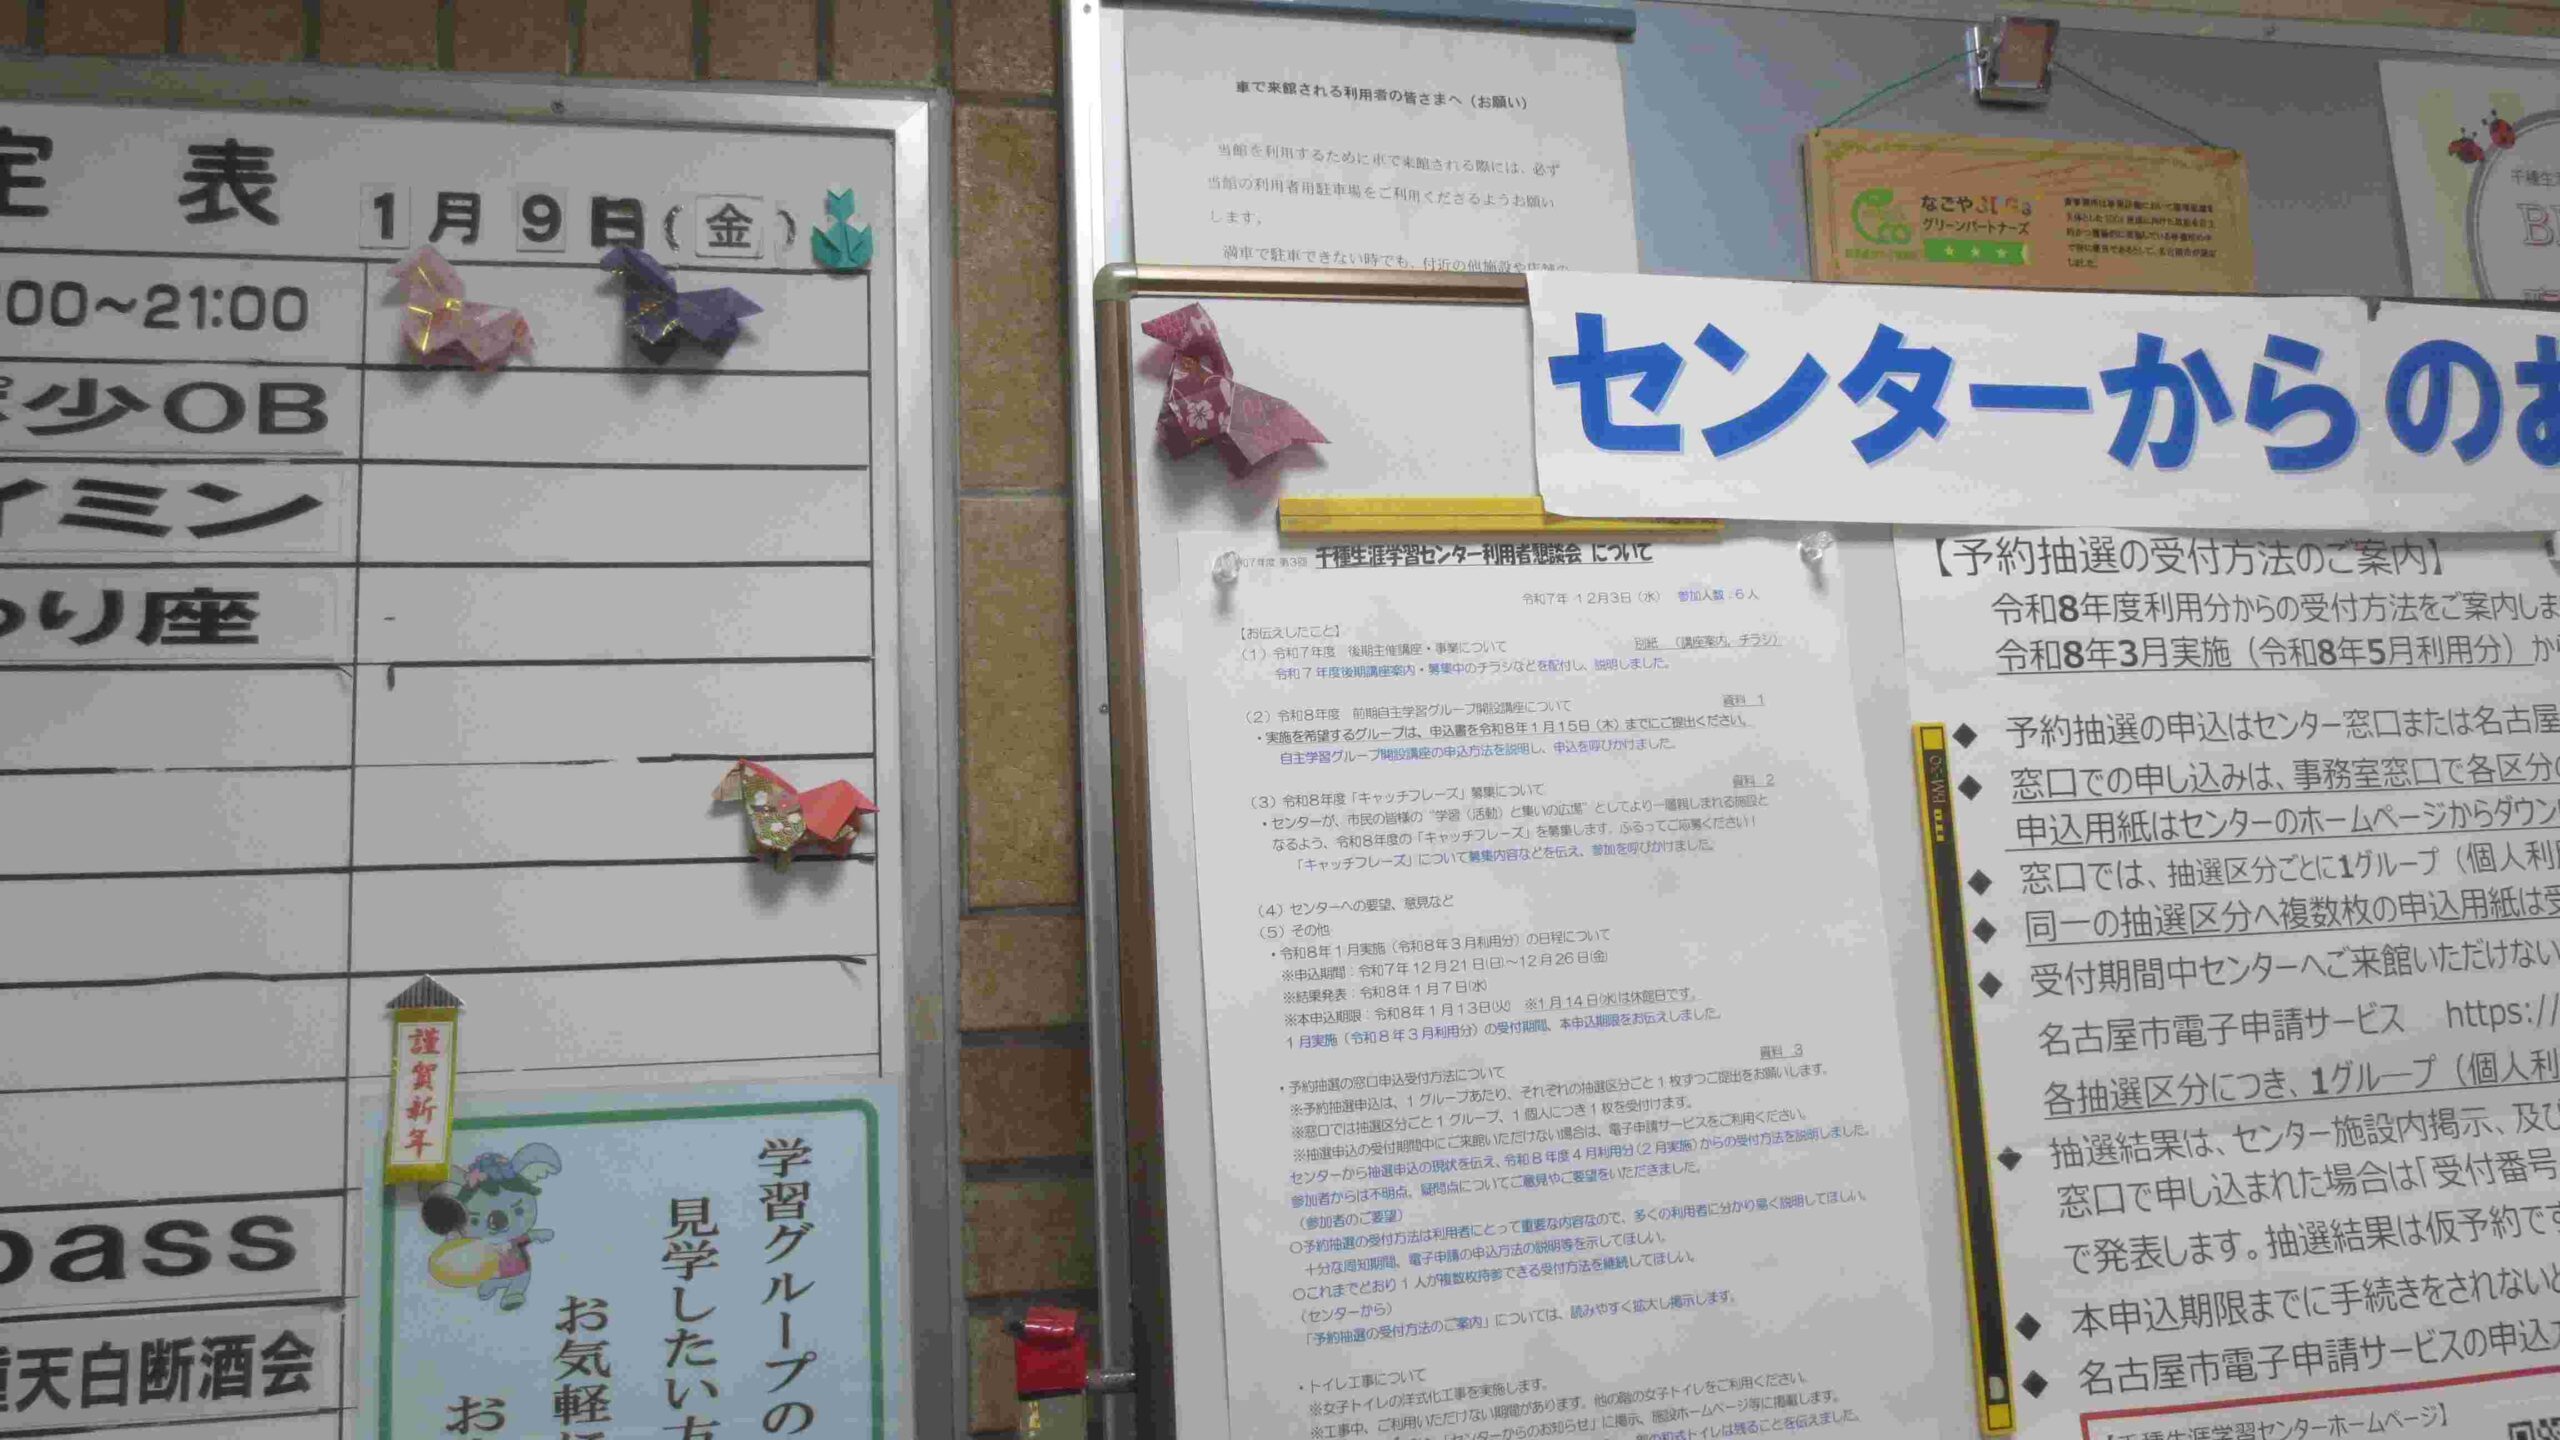 表
1月9日(金)
00~21:00
少OB
イミン
り座
pass
天白断酒会
謹賀新年
学習グループの
見学したい方
お気軽
お
車で来館される利用者の皆さまへ(お願い)
当館を利用するために車で来館される際には、必ず
当館の利用者用駐車場をご利用くださるようお願い
します。
満車で駐車できない時でも、付近の他施設や店舗の
なごや
グリーンパートナーズ
センターからのお
千種生涯学習センター利用者懇談会 について
令和7年 12月3日(水) 参加人数:6人
【お伝えしたこと】
(1)令和7年度 後期主催講座・事業について 別紙 (講座案内、チラシ)
令和7年度後期講座案内・募集中のチラシなどを配付し、説明しました。
(2)令和8年度 前期自主学習グループ開設講座について 資料 1
・実施を希望するグループは、申込書を令和8年1月15日(木)までにご提出ください。
自主学習グループ開設講座の申込方法を説明し、申込を呼びかけました。
(3)令和8年度「キャッチフレーズ」募集について 資料 2
・センターが、市民の皆様の“学習(活動)と集いの広場”としてより一層親しまれる施設と
なるよう、令和8年度の「キャッチフレーズ」を募集します。ふるってご応募ください!
「キャッチフレーズ」について募集内容などを伝え、参加を呼びかけました。
(4)センターへの要望、意見など
(5)その他
・令和8年1月実施(令和8年3月利用分)の日程について
※申込期間:令和7年12月21日(日)~12月26日(金)
※結果発表:令和8年1月7日(水)
※本申込期限:令和8年1月13日(火) ※1月14日(水)は休館日です。
1月実施(令和8年3月利用分)の受付期間、本申込期限をお伝えしました。
資料 3
・予約抽選の窓口申込受付方法について
※予約抽選申込は、1グループあたり、それぞれの抽選区分ごと1枚ずつご提出をお願いします。
※窓口では抽選区分ごと1グループ、1個人につき1枚を受付けます。
※抽選申込の受付期間中にご来館いただけない場合は、電子申請サービスをご利用ください。
センターから抽選申込の現状を伝え、令和8年度4月利用分(2月実施)からの受付方法を説明しました。
参加者からは不明点、疑問点についてご意見やご要望をいただきました。
(参加者のご要望)
○予約抽選の受付方法は利用者にとって重要な内容なので、多くの利用者に分かり易く説明してほしい。
十分な周知期間、電子申請の申込方法の説明等を示してほしい。
○これまでどおり1人が複数枚持参できる受付方法を継続してほしい。
(センターから)
「予約抽選の受付方法のご案内」については、読みやすく拡大し掲示します。
・トイレ工事について
※トイレの洋式化工事を実施します。
※工事中、ご利用いただけない期間があります。他の階の女子トイレをご利用ください。
「センターからのお知らせ」に掲示、施設ホームページ等に掲載します。
【予約抽選の受付方法のご案内】
令和8年度利用分からの受付方法をご案内しま
令和8年3月実施(令和8年5月利用分)か
◆ 予約抽選の申込はセンター窓口または名古屋
◆ 窓口での申し込みは、事務室窓口で各区分の
申込用紙はセンターのホームページからダウン
◆ 窓口では、抽選区分ごとに1グループ(個人利
◆ 同一の抽選区分へ複数枚の申込用紙は受
◆ 受付期間中センターへご来館いただけない
名古屋市電子申請サービス https://
各抽選区分につき、1グループ(個人利
◆ 抽選結果は、センター施設内掲示、及び
窓口で申し込まれた場合は「受付番号
で発表します。抽選結果は仮予約です
◆ 本申込期限までに手続きをされないと
◆ 名古屋市電子申請サービスの申込
【千種生涯学習センターホームページ】
BM-30